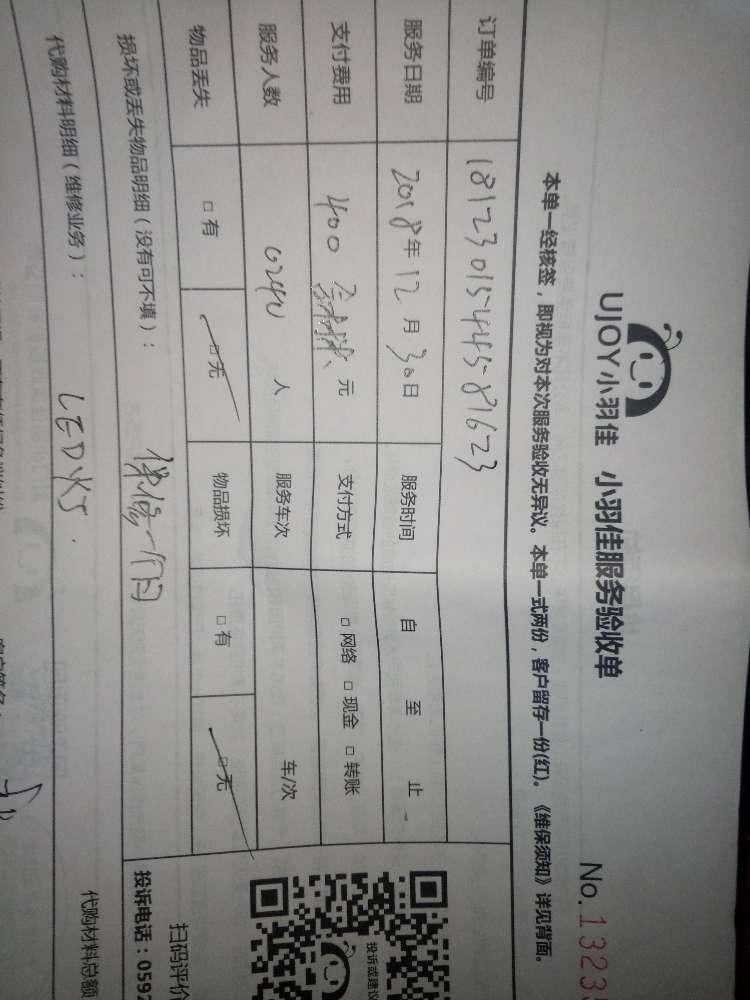 UJOY小羽佳 小羽佳服务验收单
No. 1323
本单一经核签，即视为对本次服务验收无异议。本单一式两份，客户留存一份(红)。《维保须知》详见背面。
订单编号 181230154458 1623
服务日期 2018年12月30日 服务时间 自 至 止
支付费用 400 元 支付方式 □网络 □现金 □转账
服务人数 人 服务车次 车/次
物品丢失 □有 □无 物品损坏 □有 □无
损坏或丢失物品明细（没有可不填）： 保修一个月
代购材料明细（维修业务）： LED灯.
代购材料总额
投诉或建议
扫码评价
投诉电话：0592